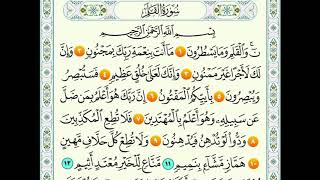 سُورَةُ القَلَمِ
بِسْمِ اللَّهِ الرَّحْمَٰنِ الرَّحِيمِ
نٓ وَالْقَلَمِ وَمَا يَسْطُرُونَ ١ مَا أَنتَ بِنِعْمَةِ رَبِّكَ بِمَجْنُونٍ ٢ وَإِنَّ
لَكَ لَأَجْرًا غَيْرَ مَمْنُونٍ ٣ وَإِنَّكَ لَعَلَىٰ خُلُقٍ عَظِيمٍ ٤ فَسَتُبْصِرُ
وَيُبْصِرُونَ ٥ بِأَييِّكُمُ الْمَفْتُونُ ٦ إِنَّ رَبَّكَ هُوَ أَعْلَمُ بِمَن ضَلَّ
عَن سَبِيلِهِ وَهُوَ أَعْلَمُ بِالْمُهْتَدِينَ ٧ فَلَا تُطِعِ الْمُكَذِّبِينَ
٨ وَدُّوا لَوْ تُدْهِنُ فَيُدْهِنُونَ ٩ وَلَا تُطِعْ كُلَّ حَلَّافٍ مَّهِينٍ
١٠ هَمَّازٍ مَّشَّاءٍ بِنَمِيمٍ ١١ مَّنَّاعٍ لِّلْخَيْرِ مُعْتَدٍ أَثِيمٍ ١٢